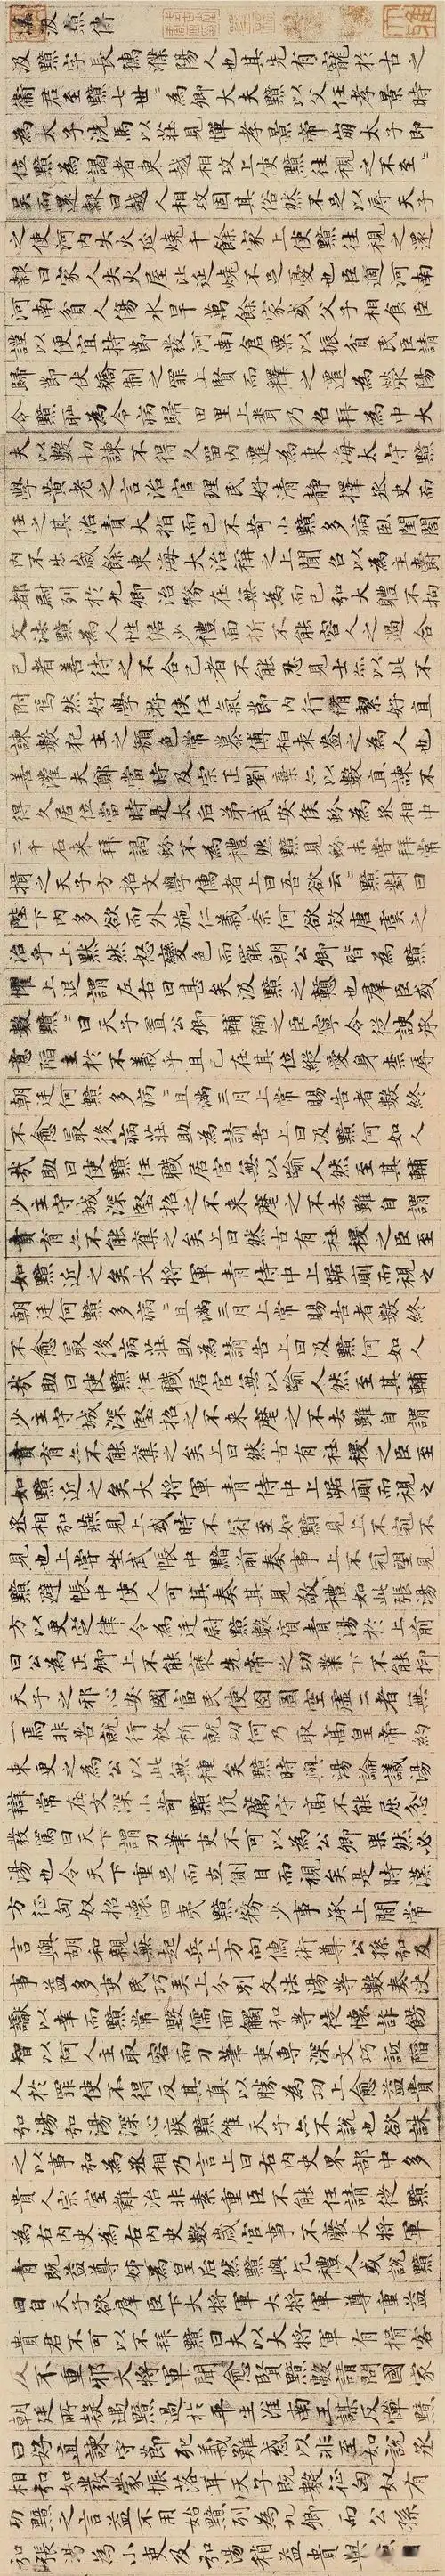 汲黯傳
汲黯字長孺濮陽人也其先有寵於古之
衛君至黯七世〻為卿大夫黯以父任孝景時
為太子洗馬以莊見憚孝景帝崩太子即
位黯為謁者東越相攻上使黯往視之不至〻
吳而還報曰越人相攻固其俗然不足以辱天子
之使河內失火延燒千餘家上使黯往視之還
報曰家人失火屋比延燒不足憂也臣過河南
河南貧人傷水旱萬餘家或父子相食臣
謹以便宜持節發河南倉粟以振貧民臣請
歸節伏矯制之罪上賢而釋之遷為滎陽
令黯恥為令病歸田里上聞乃召拜為中大
夫以數切諫不得久留內遷為東海太守黯
學黃老之言治官理民好清靜擇丞史而
任之其治責大指而已不苛小黯多病臥閨閤
內不出歲餘東海大治稱之上聞召以為主爵
都尉列於九卿治務在無為而已弘大體不拘
文法黯為人性倨少禮面折不能容人之過合
己者善待之不合己者不能忍見士亦以此不
附焉然好學游俠任氣節內行脩絜好直
諫數犯主之顏色常慕傅柏袁盎之為人也
善灌夫鄭當時及宗正劉棄亦以數直諫不
得久居位當時是太后弟武安侯蚡為丞相中
二千石來拜謁蚡不為禮然黯見蚡未嘗拜常
揖之天子方招文學儒者上曰吾欲云〻黯對曰
陛下內多欲而外施仁義奈何欲效唐虞之
治乎上默然怒變色而罷朝公卿皆為黯
懼上退謂左右曰甚矣汲黯之戇也群臣或
數黯〻曰天子置公卿輔弼之臣寧令從諛承
意陷主於不義乎且已在其位縱愛身奈辱
朝廷何黯多病〻且滿三月上常賜告者數終
不愈最後病莊助為請告上曰汲黯何如人
哉助曰使黯任職居官無以踰人然至其輔
少主守城深堅招之不來麾之不去雖自謂
賁育亦不能奪之矣上曰然古有社稷之臣至
如黯近之矣大將軍青侍中上踞廁而視之
朝廷何黯多病〻且滿三月上常賜告者數終
不愈最後病莊助為請告上曰汲黯何如人
哉助曰使黯任職居官無以踰人然至其輔
少主守城深堅招之不來麾之不去雖自謂
賁育亦不能奪之矣上曰然古有社稷之臣至
如黯近之矣大將軍青侍中上踞廁而視之
丞相弘燕見上或時不冠至如黯見上不冠不
見也上嘗坐武帳中黯前奏事上不冠望見
黯避帳中使人可其奏其見敬禮如此張湯
方以更定律令為廷尉黯數質責湯於上前
曰公為正卿上不能褒先帝之功業下不能抑
天子之邪心安國富民使囹圄空虛二者無
一焉非苦就行放析就功何乃取高皇帝約
束更之為公以此無種矣黯時與湯論議湯
辯常在文深小苛黯伉厲守高不能屈忿
發罵曰天下謂刀筆吏不可以為公卿果然必
湯也令天下重足而立側目而視矣是時漢
方征匈奴招懷四夷黯務少事承上閒常
言與胡和親無起兵上方向儒術尊公孫弘及
事益多吏民巧弄上分別文法湯等數奏決
讞以幸而黯常毀儒面觸弘等徒懷詐飾
智以阿人主取容而刀筆吏專深文巧詆陷
人於罪使不得反其真以勝為功上愈益貴
弘湯弘湯深心疾黯唯天子亦不說也欲誅
之以事弘為丞相乃言上曰右內史界部中多
貴人宗室難治非素重臣不能任請徙黯
為右內史為右內史數歲官事不廢大將軍
青既益尊姊為皇后然黯與亢禮人或說黯
曰自天子欲群臣下大將軍大將軍尊重益
貴君不可以不拜黯曰夫以大將軍有揖客
反不重邪大將軍聞愈賢黯數請問國家
朝廷所疑遇黯過於平生淮南王謀反憚黯
曰好直諫守節死義難惑以非至如說丞
相弘如發蒙振落耳天子既數征匈奴有
功黯之言益不用始黯列為九卿而公孫
弘張湯為小吏及弘湯稍益貴與